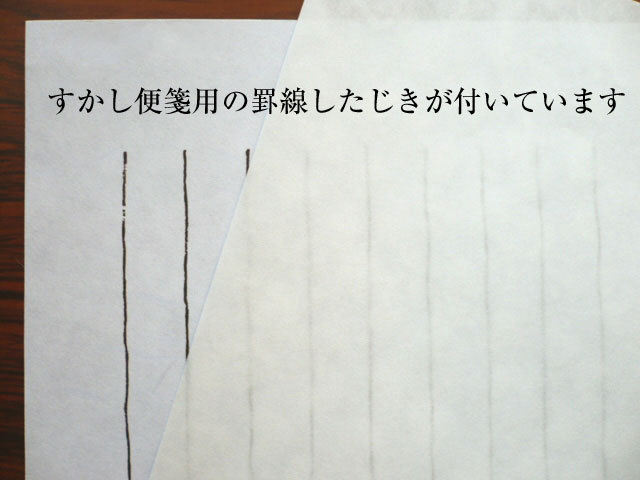 すかし便箋用の罫線したじきが付いています